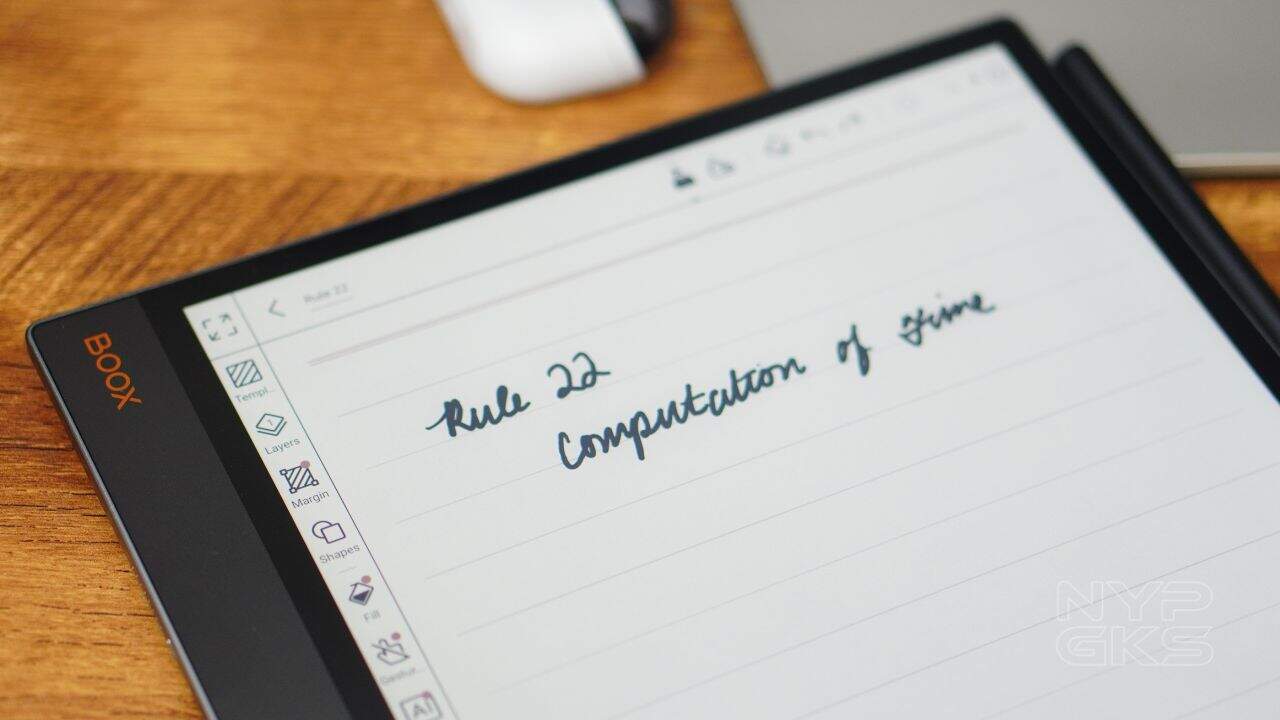 BOOX
Rule 22
Templ..
Layers
Margin
Shapes
Fill
Gestur..
AI
Rule 22
Computation of Time
NYP
GKS